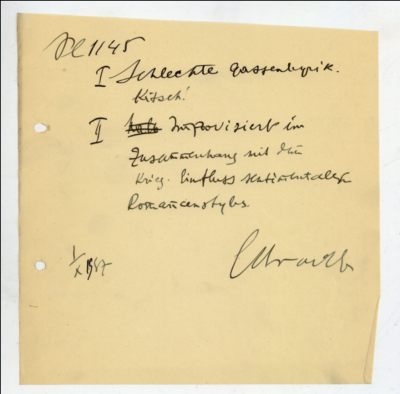 1145
I Schlechte Gassenlyrik.
Kitsch!
II Improvisiert im
Zusammenhang mit dem
Krieg. Einfluss sentimentaler
Romanzenstyles.